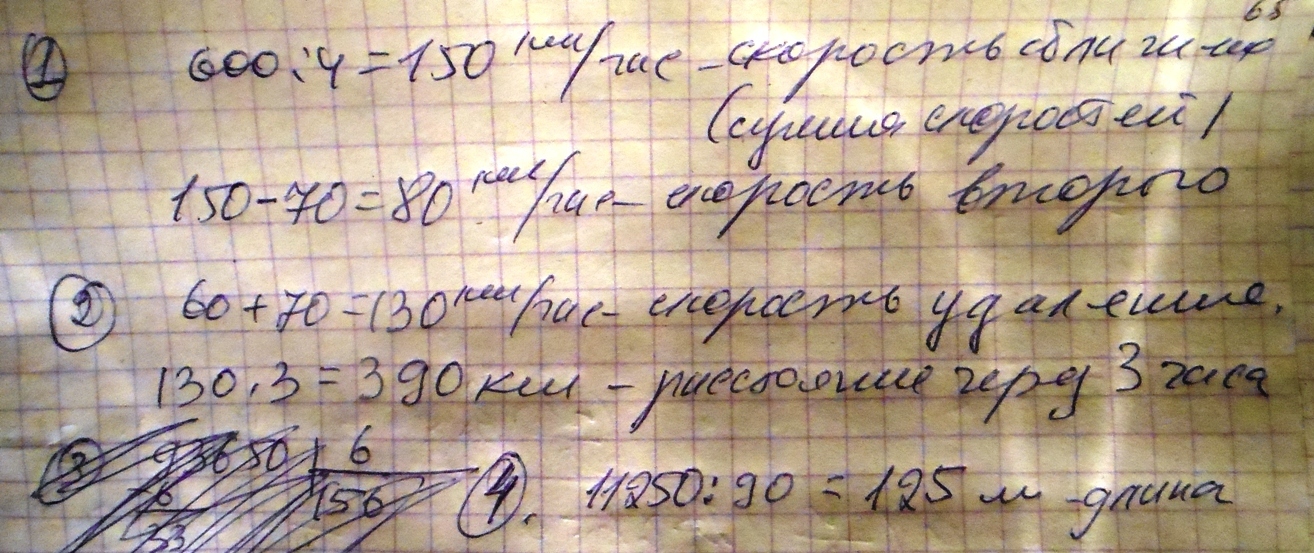 65
① 600:4=150 км/час - скорость сближ-ия
(сумма скоростей)
150-70=80 км/час - скорость второго
② 60+70=130 км/час - скорость удаления.
130.3=390 км - расстояние через 3 часа
③ 93650 6
6 156
33
④. 11250:90=125 м - длина